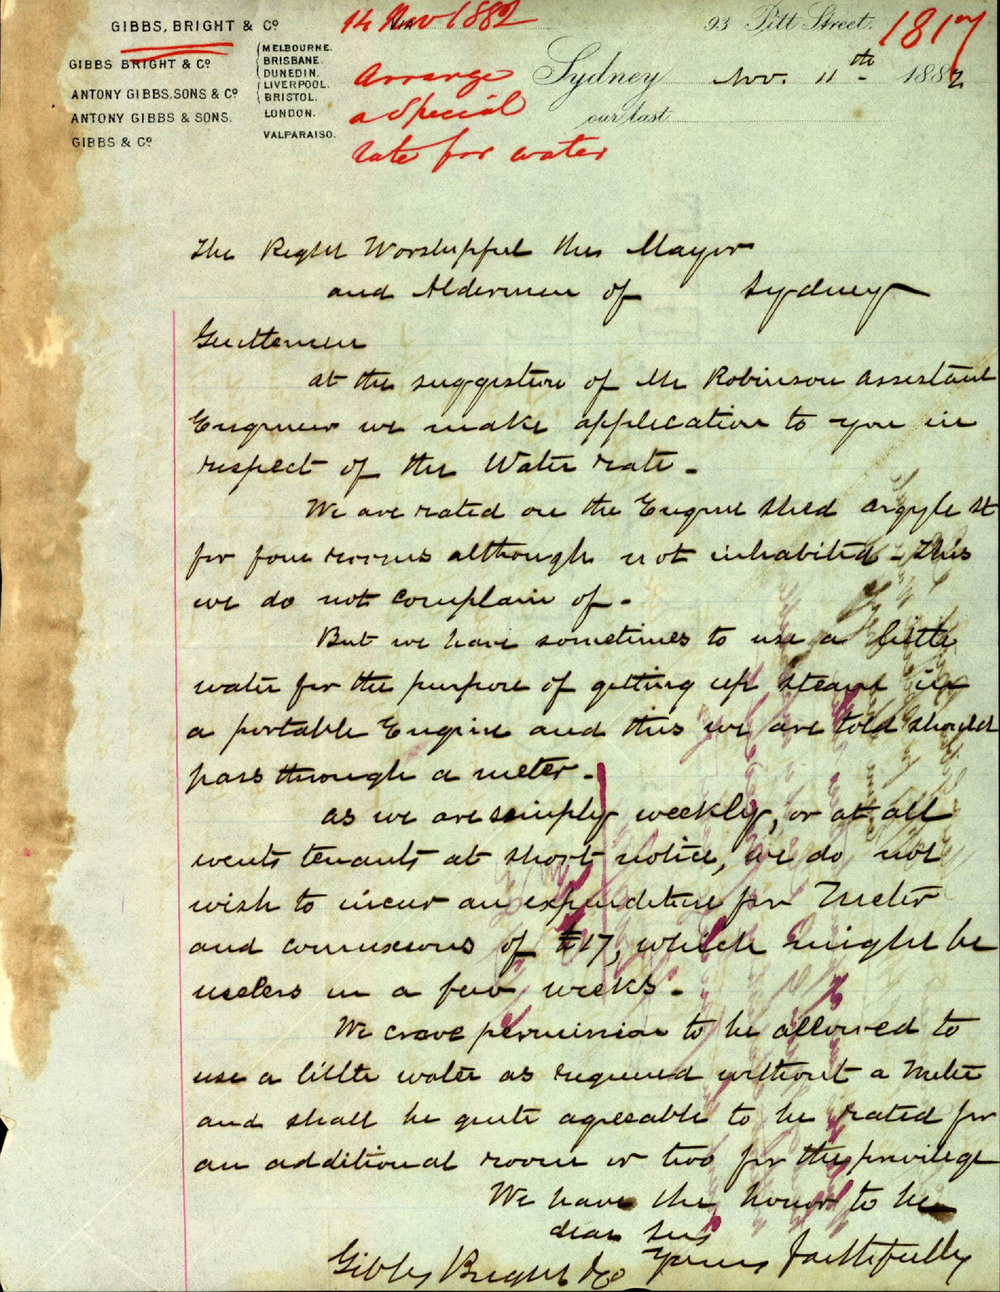 GIBBS, BRIGHT & Co
14 Nov 1882
93 Pitt Street.
1817
GIBBS BRIGHT & Co
MELBOURNE.
BRISBANE.
DUNEDIN.
LIVERPOOL.
BRISTOL.
ANTONY GIBBS, SONS & Co
ANTONY GIBBS & SONS.
LONDON.
GIBBS & Co
VALPARAISO.
Arrange
a Special
rate for water
Sydney Nov. 11th 1882
our last
The Right Worshipful the Mayor
and Aldermen of Sydney
Gentlemen
at the suggestion of Mr Robinson Assistant
Engineer we make application to you in
respect of the Water rate -
We are rated on the Engine Shed Argyle St
for four rooms although not inhabited - this
we do not complain of -
But we have sometimes to use a little
water for the purpose of getting up steam in
a portable Engine and this we are told should
pass through a meter -
as we are simply weekly, or at all
events tenants at short notice, we do not
wish to incur an expenditure for Meter
and connexions of £17, which might be
useless in a few weeks -
We crave permission to be allowed to
use a little water as required without a Meter
and shall be quite agreeable to be rated for
an additional room or two for the privilege
We have the honor to be
dear Sirs
Yours faithfully
Gibbs Bright & Co